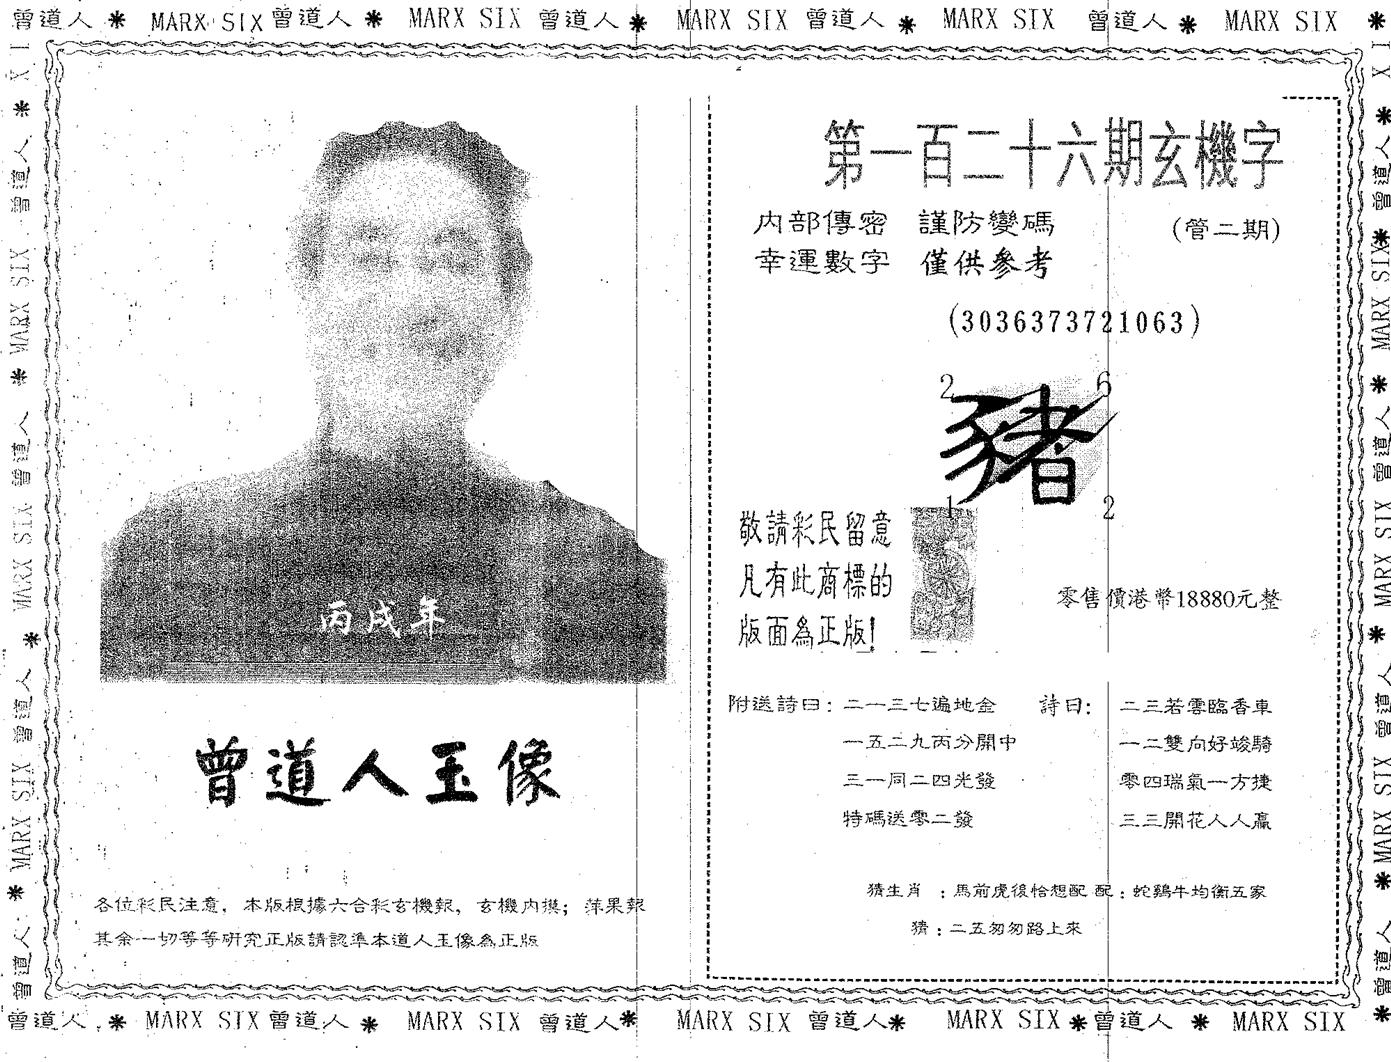 曾道人 * MARX SIX 曾道人 * MARX SIX 曾道人 * MARX SIX 曾道人 * MARX SIX 曾道人 * MARX SIX *
丙戌年
曾道人玉像
各位彩民注意，本版根據六合彩玄機報，玄機内摸；萍果報
其余一切等等研究正版請認準本道人玉像為正版
第一百二十六期玄機字
内部傳密 謹防變碼 (管二期)
幸運數字 僅供參考
(3036373721063)
2 6
豬
1 2
敬請彩民留意
凡有此商標的
版面為正版!
零售價港幣18880元整
附送詩曰：二一三七遍地金
一五二九丙分開中
三一同二四光發
特碼送零二發
詩曰：二三若雲臨香車
一二雙向好竣騎
零四瑞氣一方捷
三三開花人人贏
猜生肖 ：馬前虎後恰想配 配：蛇鷄牛均衡五家
猜：二五匆匆路上來
曾道人 * MARX SIX 曾道人 * MARX SIX 曾道人 * MARX SIX 曾道人 * MARX SIX * 曾道人 * MARX SIX *
X I * 曾道人 MARX SIX * 曾道人 MARX SIX * 曾道人 MARX SIX * 曾道人
X I * 曾道人 * MARX SIX * 曾道人 MARX SIX * 曾道人 MARX SIX * 曾道人 *